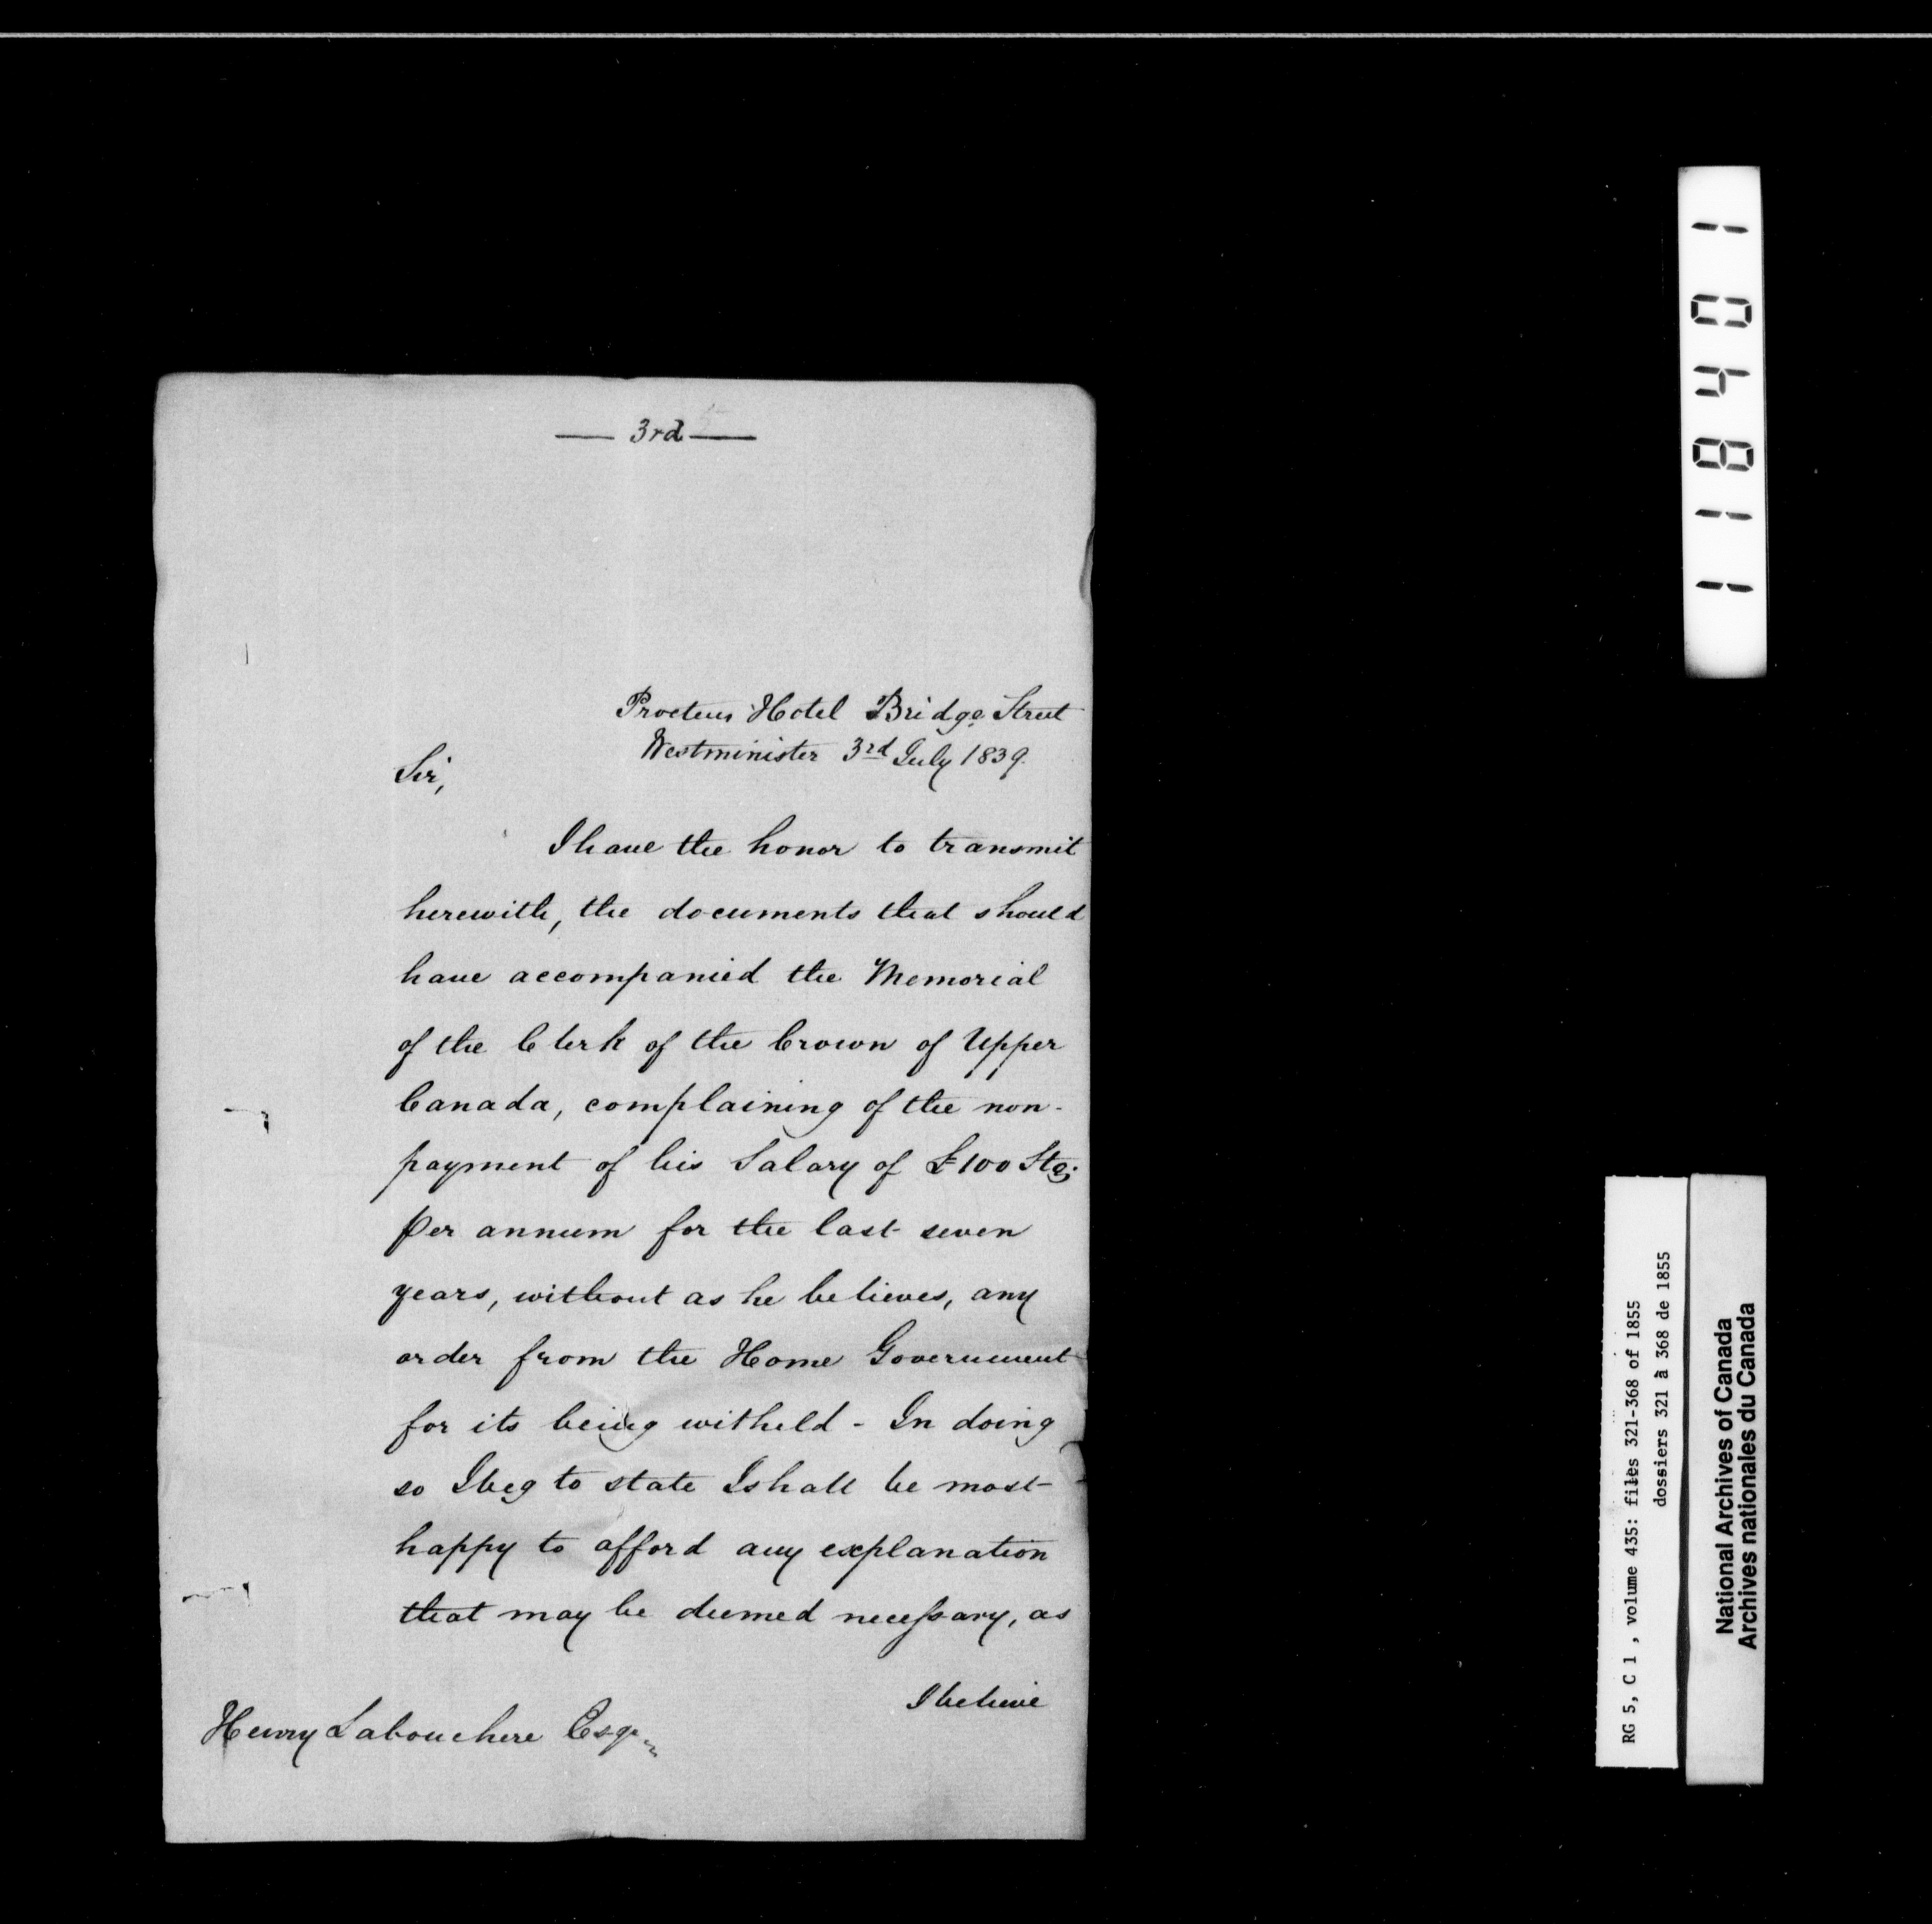 — 3rd —
Procters Hotel Bridge Street
Westminister 3rd July 1839.
Sir,
I have the honor to transmit
herewith, the documents that should
have accompanied the Memorial
of the Clerk of the Crown of Upper
Canada, complaining of the non-
payment of his Salary of £100 Stg:
per annum for the last seven
years, without as he believes, any
order from the Home Government
for its being witheld - In doing
so I beg to state I shall be most
happy to afford any explanation
that may be deemed necessary, as
I believe
Henry Labouchere Esqr
118401
RG 5, C 1 , volume 435: files 321-368 of 1855
dossiers 321 à 368 de 1855
National Archives of Canada
Archives nationales du Canada